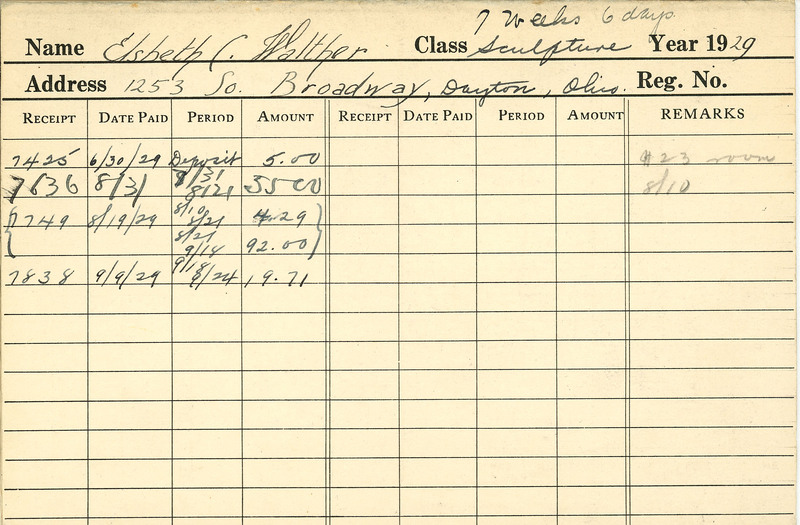 7 Weeks 6 days
Name Elsbeth C. Walther Class Sculpture Year 1929
Address 1253 So. Broadway, Dayton, Ohio. Reg. No.
RECEIPT DATE PAID PERIOD AMOUNT RECEIPT DATE PAID PERIOD AMOUNT REMARKS
7425 6/30/29 Deposit 5.00 $23 room
7636 8/31 8/21 35 00 8/10
7749 8/19/29 8/10 8/21 4.29
8/21 9/18 92.00
7838 9/9/29 9/18 8/24 19.71